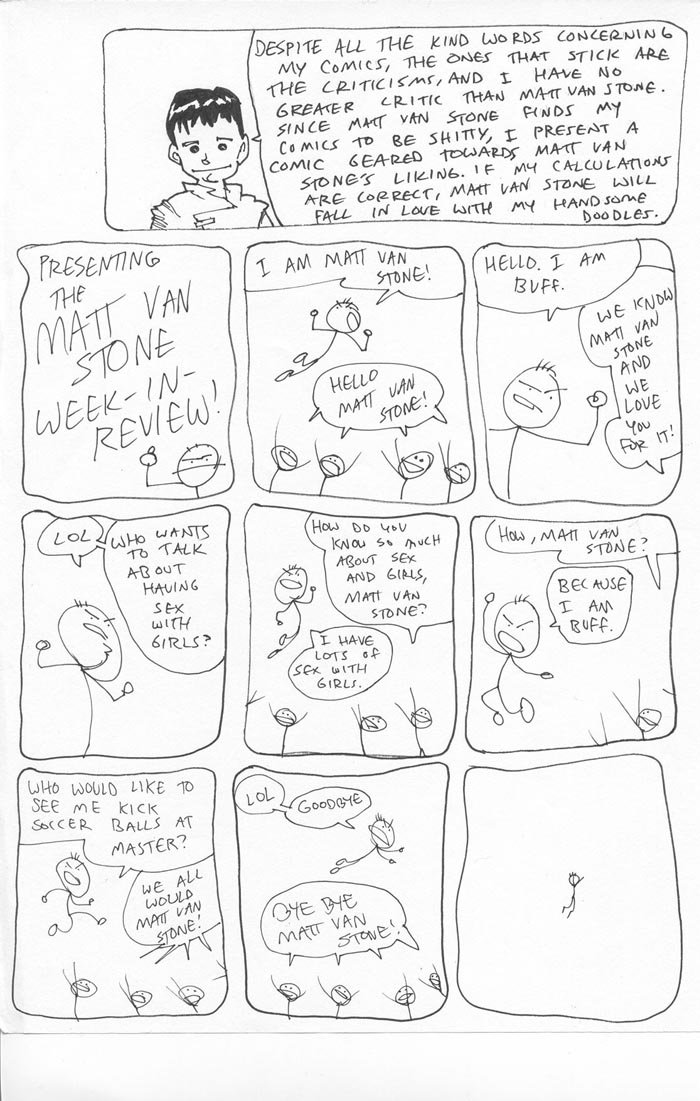 DESPITE ALL THE KIND WORDS CONCERNING
MY COMICS, THE ONES THAT STICK ARE
THE CRITICISMS, AND I HAVE NO
GREATER CRITIC THAN MATT VAN STONE.
SINCE MATT VAN STONE FINDS MY
COMICS TO BE SHITTY, I PRESENT A
COMIC GEARED TOWARDS MATT VAN
STONE'S LIKING. IF MY CALCULATIONS
ARE CORRECT, MATT VAN STONE WILL
FALL IN LOVE WITH MY HANDSOME
DOODLES.
PRESENTING
THE
MATT VAN
STONE
WEEK-IN-
REVIEW!
I AM MATT VAN
STONE!
HELLO
MATT VAN
STONE!
HELLO. I AM
BUFF.
WE KNOW
MATT VAN
STONE
AND
WE
LOVE
YOU
FOR IT!
LOL
WHO WANTS
TO TALK
ABOUT
HAVING
SEX
WITH
GIRLS?
HOW DO YOU
KNOW SO MUCH
ABOUT SEX
AND GIRLS,
MATT VAN
STONE?
I HAVE
LOTS OF
SEX WITH
GIRLS.
HOW, MATT VAN
STONE?
BECAUSE
I AM
BUFF.
WHO WOULD LIKE TO
SEE ME KICK
SOCCER BALLS AT
MASTER?
WE ALL
WOULD
MATT VAN
STONE!
LOL
GOODBYE
BYE BYE
MATT VAN
STONE!